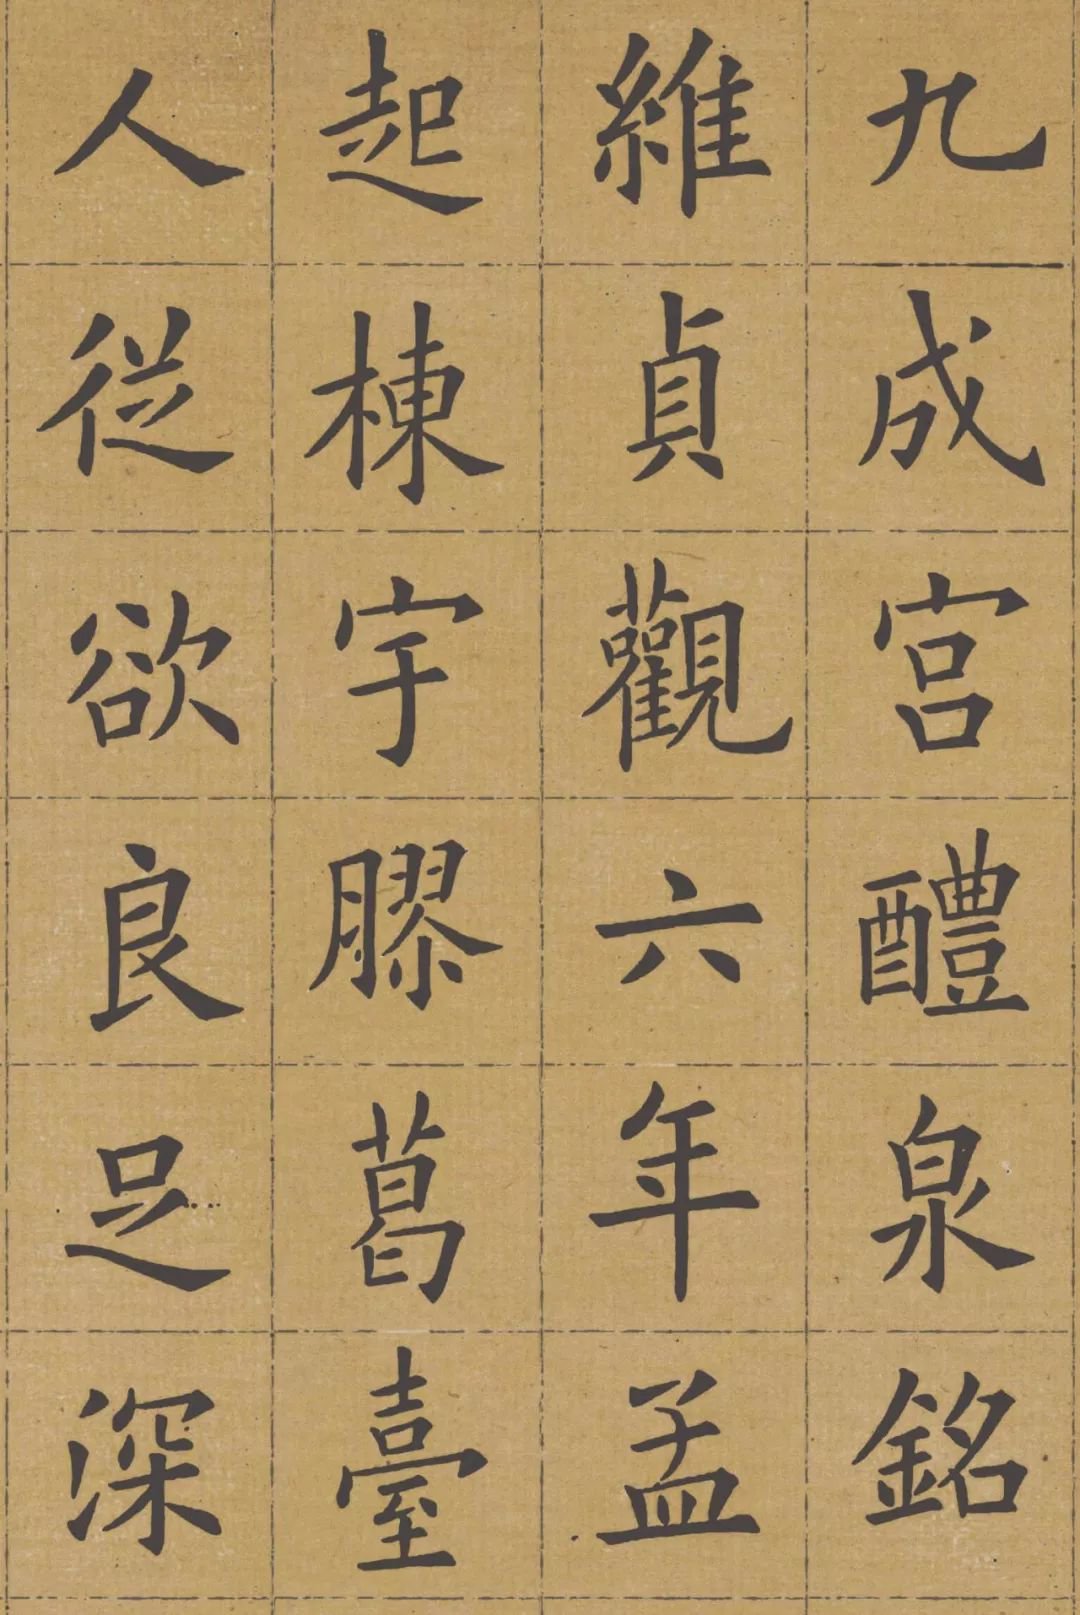 九成宮醴泉銘
維貞觀六年孟
起棟宇膠葛臺
人從欲良足深